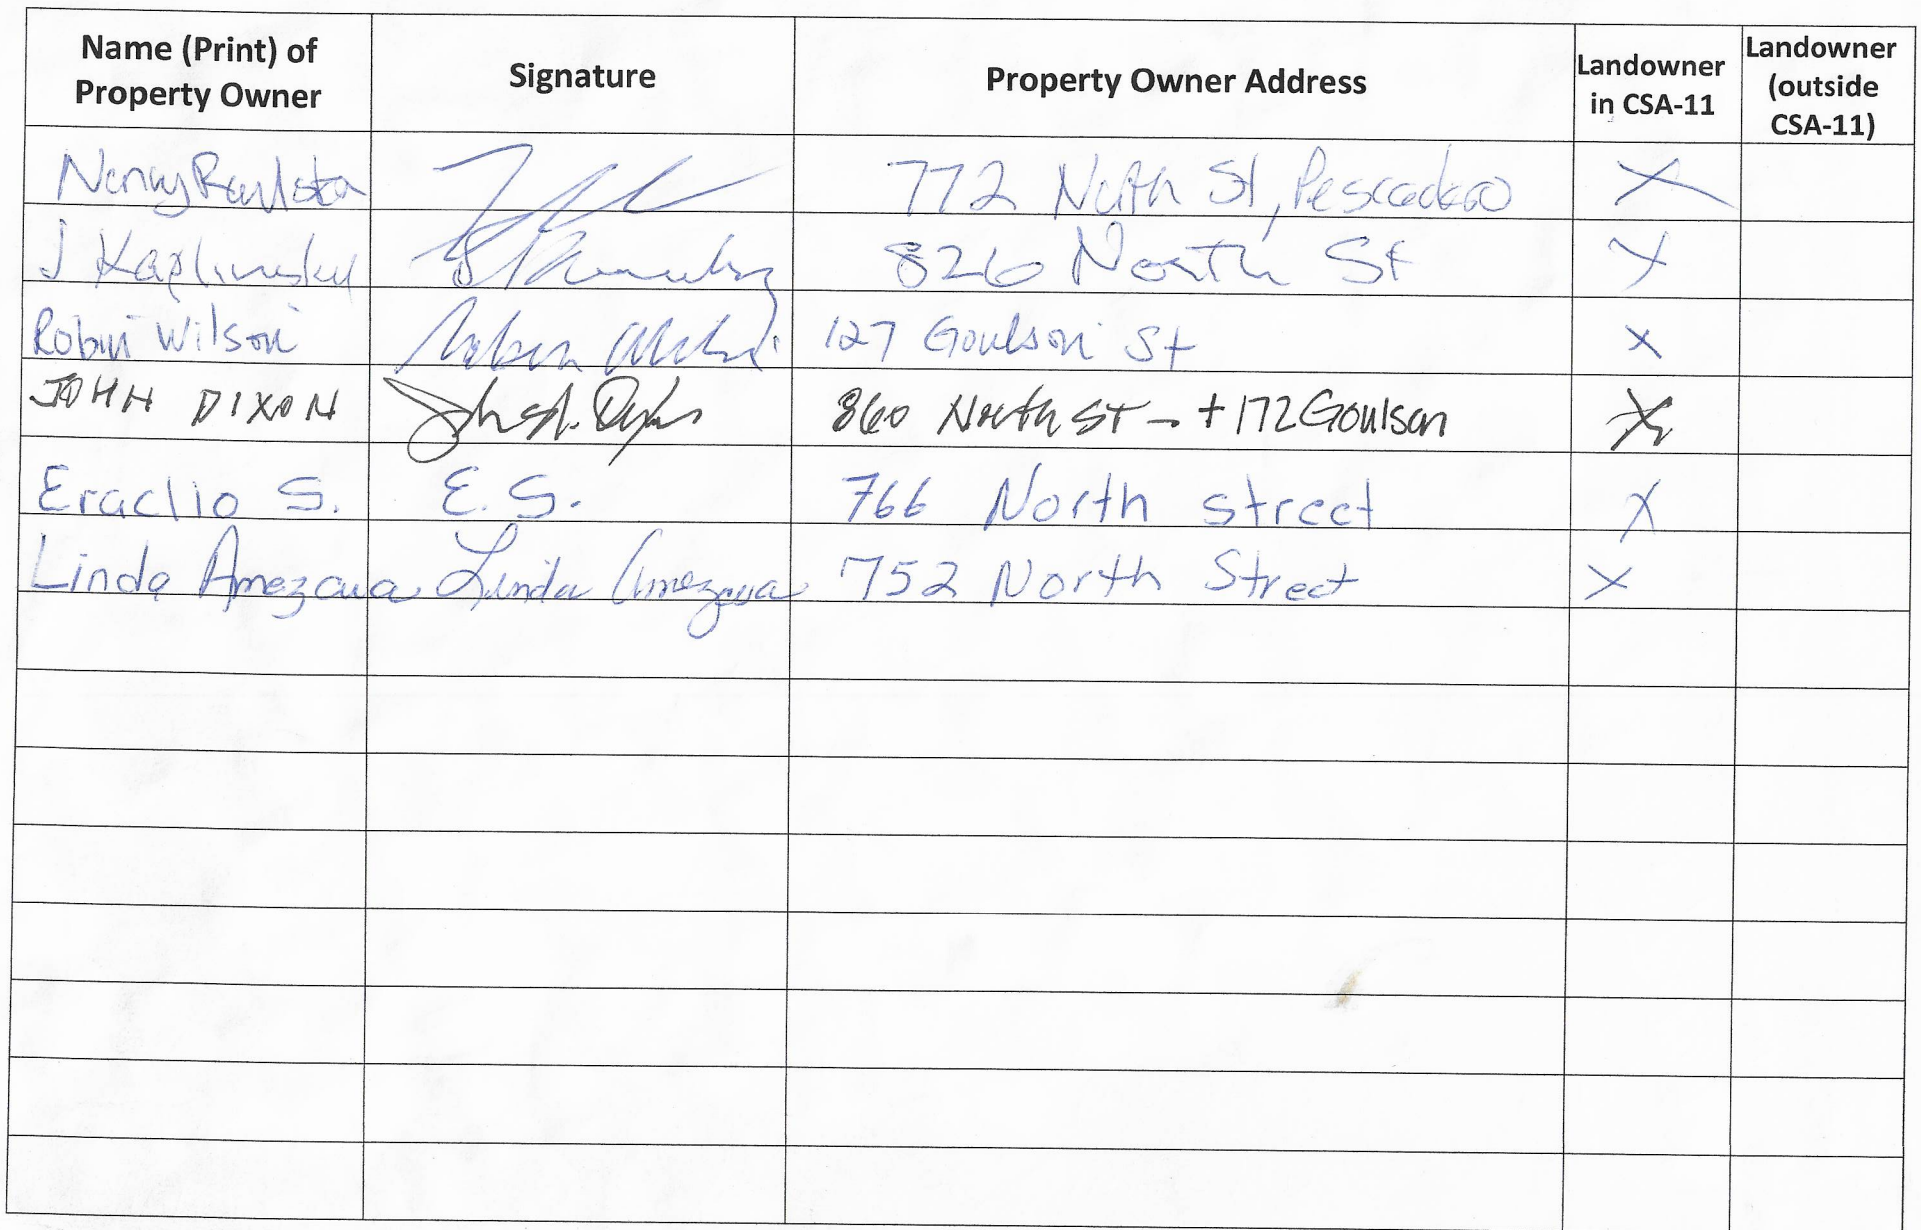 Name (Print) of Property Owner
Signature
Property Owner Address
Landowner in CSA-11
Landowner (outside CSA-11)
Nancy 772 North St, Pescadero X
J Kaplinsky 826 North St X
Robin Wilson Robin 127 Goulson St X
JOHN DIXON John Dixon 860 North ST - + 172 Goulson X
Eraclio S. E. S. 766 North Street X
Linda Amezcua Linda Amezcua 752 North Street X